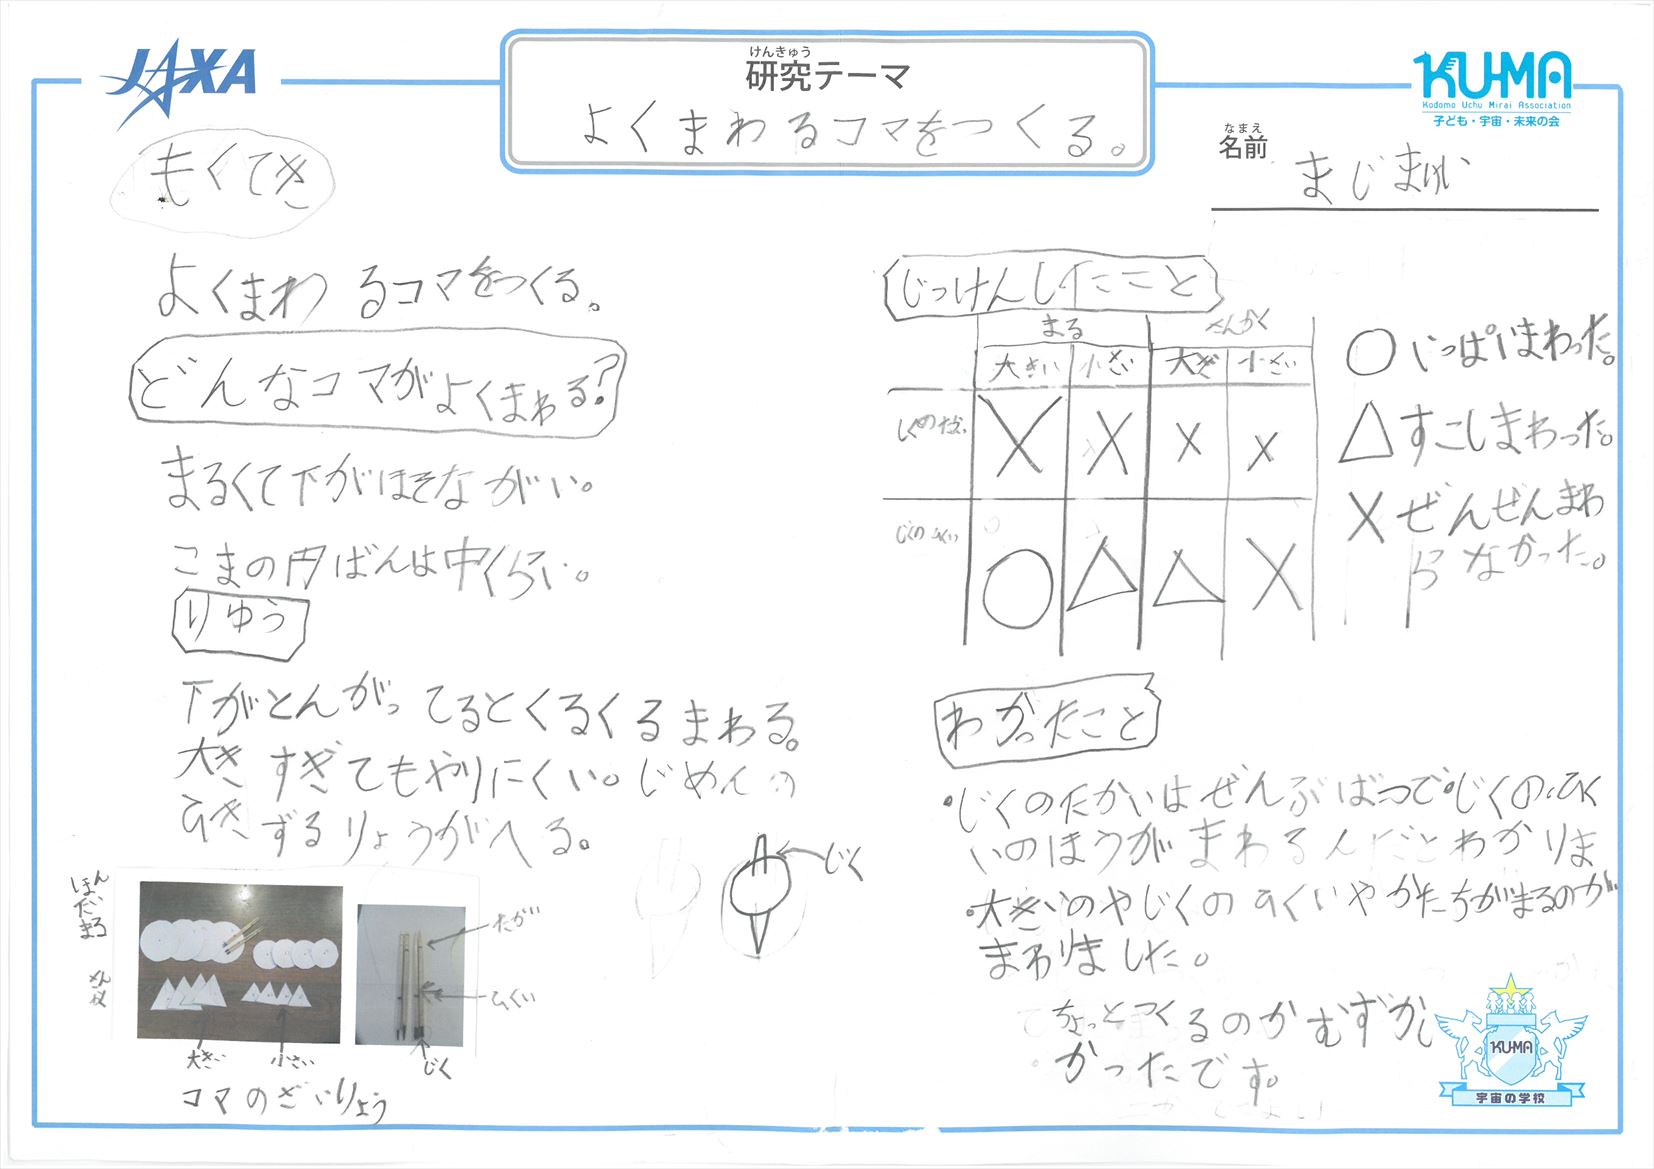 JAXA
けんきゅう
研究テーマ
よくまわるコマをつくる。
KU-MA
Kodomo Uchu Mirai Association
子ども・宇宙・未来の会
なまえ
名前
まじま
もくてき
よくまわるコマをつくる。
どんなコマがよくまわる?
まるくて下がほそながい。
こまの円ばんは中くらい。
りゆう
下がとんがってるとくるくるまわる。
大きすぎてもやりにくい。じめんの
ひきずるりょうがへる。
じく
大きい
小さい
たかい
ひくい
じく
コマのざいりょう
じっけんしたこと
まる
さんかく
大きい
小さい
大きい
小さい
じくのたかい
じくのひくい
○いっぱいまわった。
△すこしまわった。
×ぜんぜんまわ
らなかった。
わかったこと
・じくのたかいはぜんぶばつで・じくのひく
いのほうがまわるんだとわかりま
・大きいのやじくのひくいやかたちがまるのが
まわりました。
ちょっとつくるのがむずかし
かったです。
KU-MA
宇宙の学校